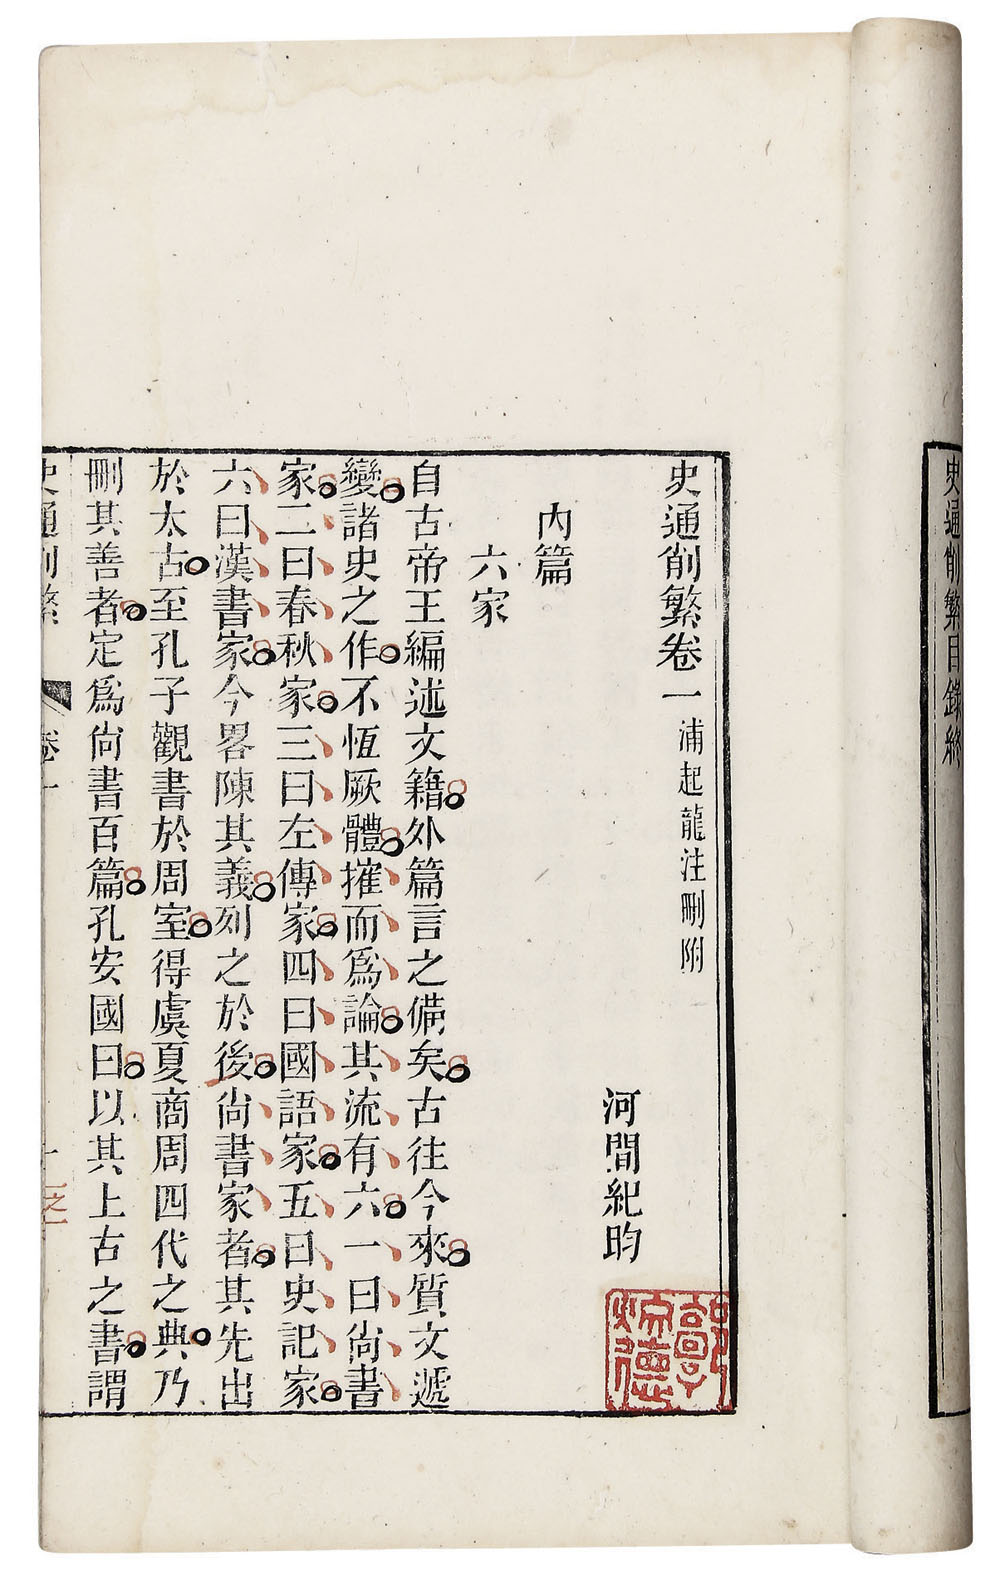 史通削繁目錄終
史通削繁卷一 浦起龍注刪附
河間紀昀
內篇
六家
自古帝王編述文籍外篇言之備矣古往今來質文遞
變諸史之作不恆厥體搉而為論其流有六一曰尙書
家二曰春秋家三曰左傳家四曰國語家五曰史記家
六曰漢書家今畧陳其義列之於後尙書家者其先出
於太古至孔子觀書於周室得虞夏商周四代之典乃
刪其善者定爲尙書百篇孔安國曰以其上古之書謂
史通削繁 卷一